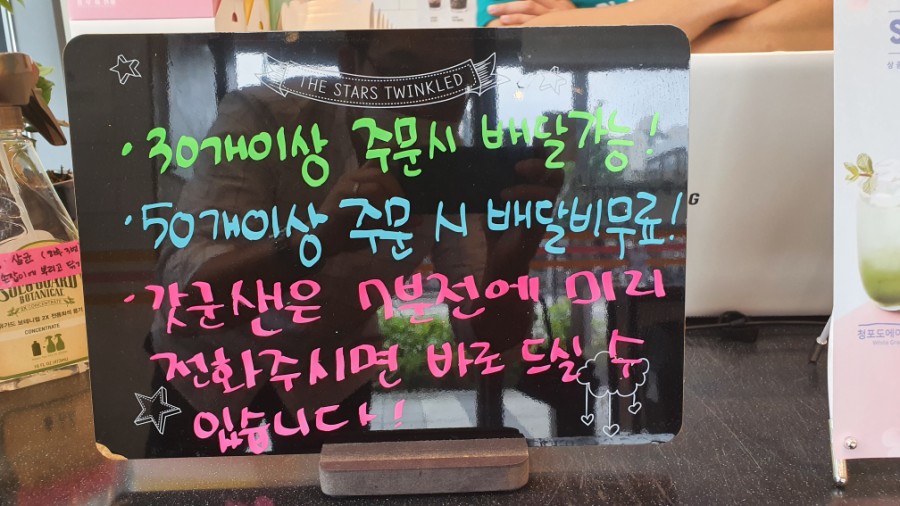 THE STARS TWINKLED
· 30개이상 주문시 배달가능!
· 50개이상 주문 시 배달비무료!
· 갓군샌은 7분전에 미리
전화주시면 바로 드실 수
있습니다!
G
BOTANICAL
CONCENTRATE
청포도에이